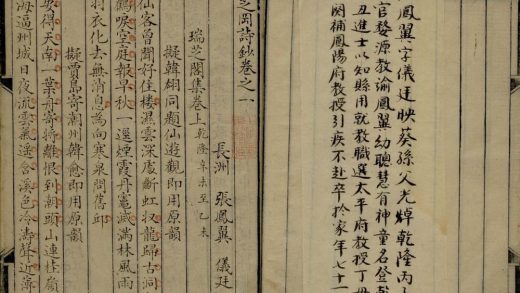 鳳翼字儀廷映葵孫父光焯乾隆丙
官婺源教諭鳳翼幼聰慧有神童名登乾
丑進士以知縣用就教職選太平府教授丁母
闋補鳳陽府教授引疾不赴卒於家年七十一
芝岡詩鈔卷之一
瑞芝閣集卷上 乾隆辛未至乙未
長洲 張鳳翼 儀廷
擬韓翃同題仙遊觀即用原韻
仙客曾聞好住樓濕雲深處斷虹收龍歸古洞
鶴唳空庭報早秋一逕煙霞丹竈滅滿林風雨
羽衣化去無消息為向寒泉問舊邱
擬賈島寄潮州韓愈即用原韻
安得天南一葉舟寄將離恨到潮頭山連桂嶺
海逼州城日夜流雲氣遙含溪色冷濤聲近薄